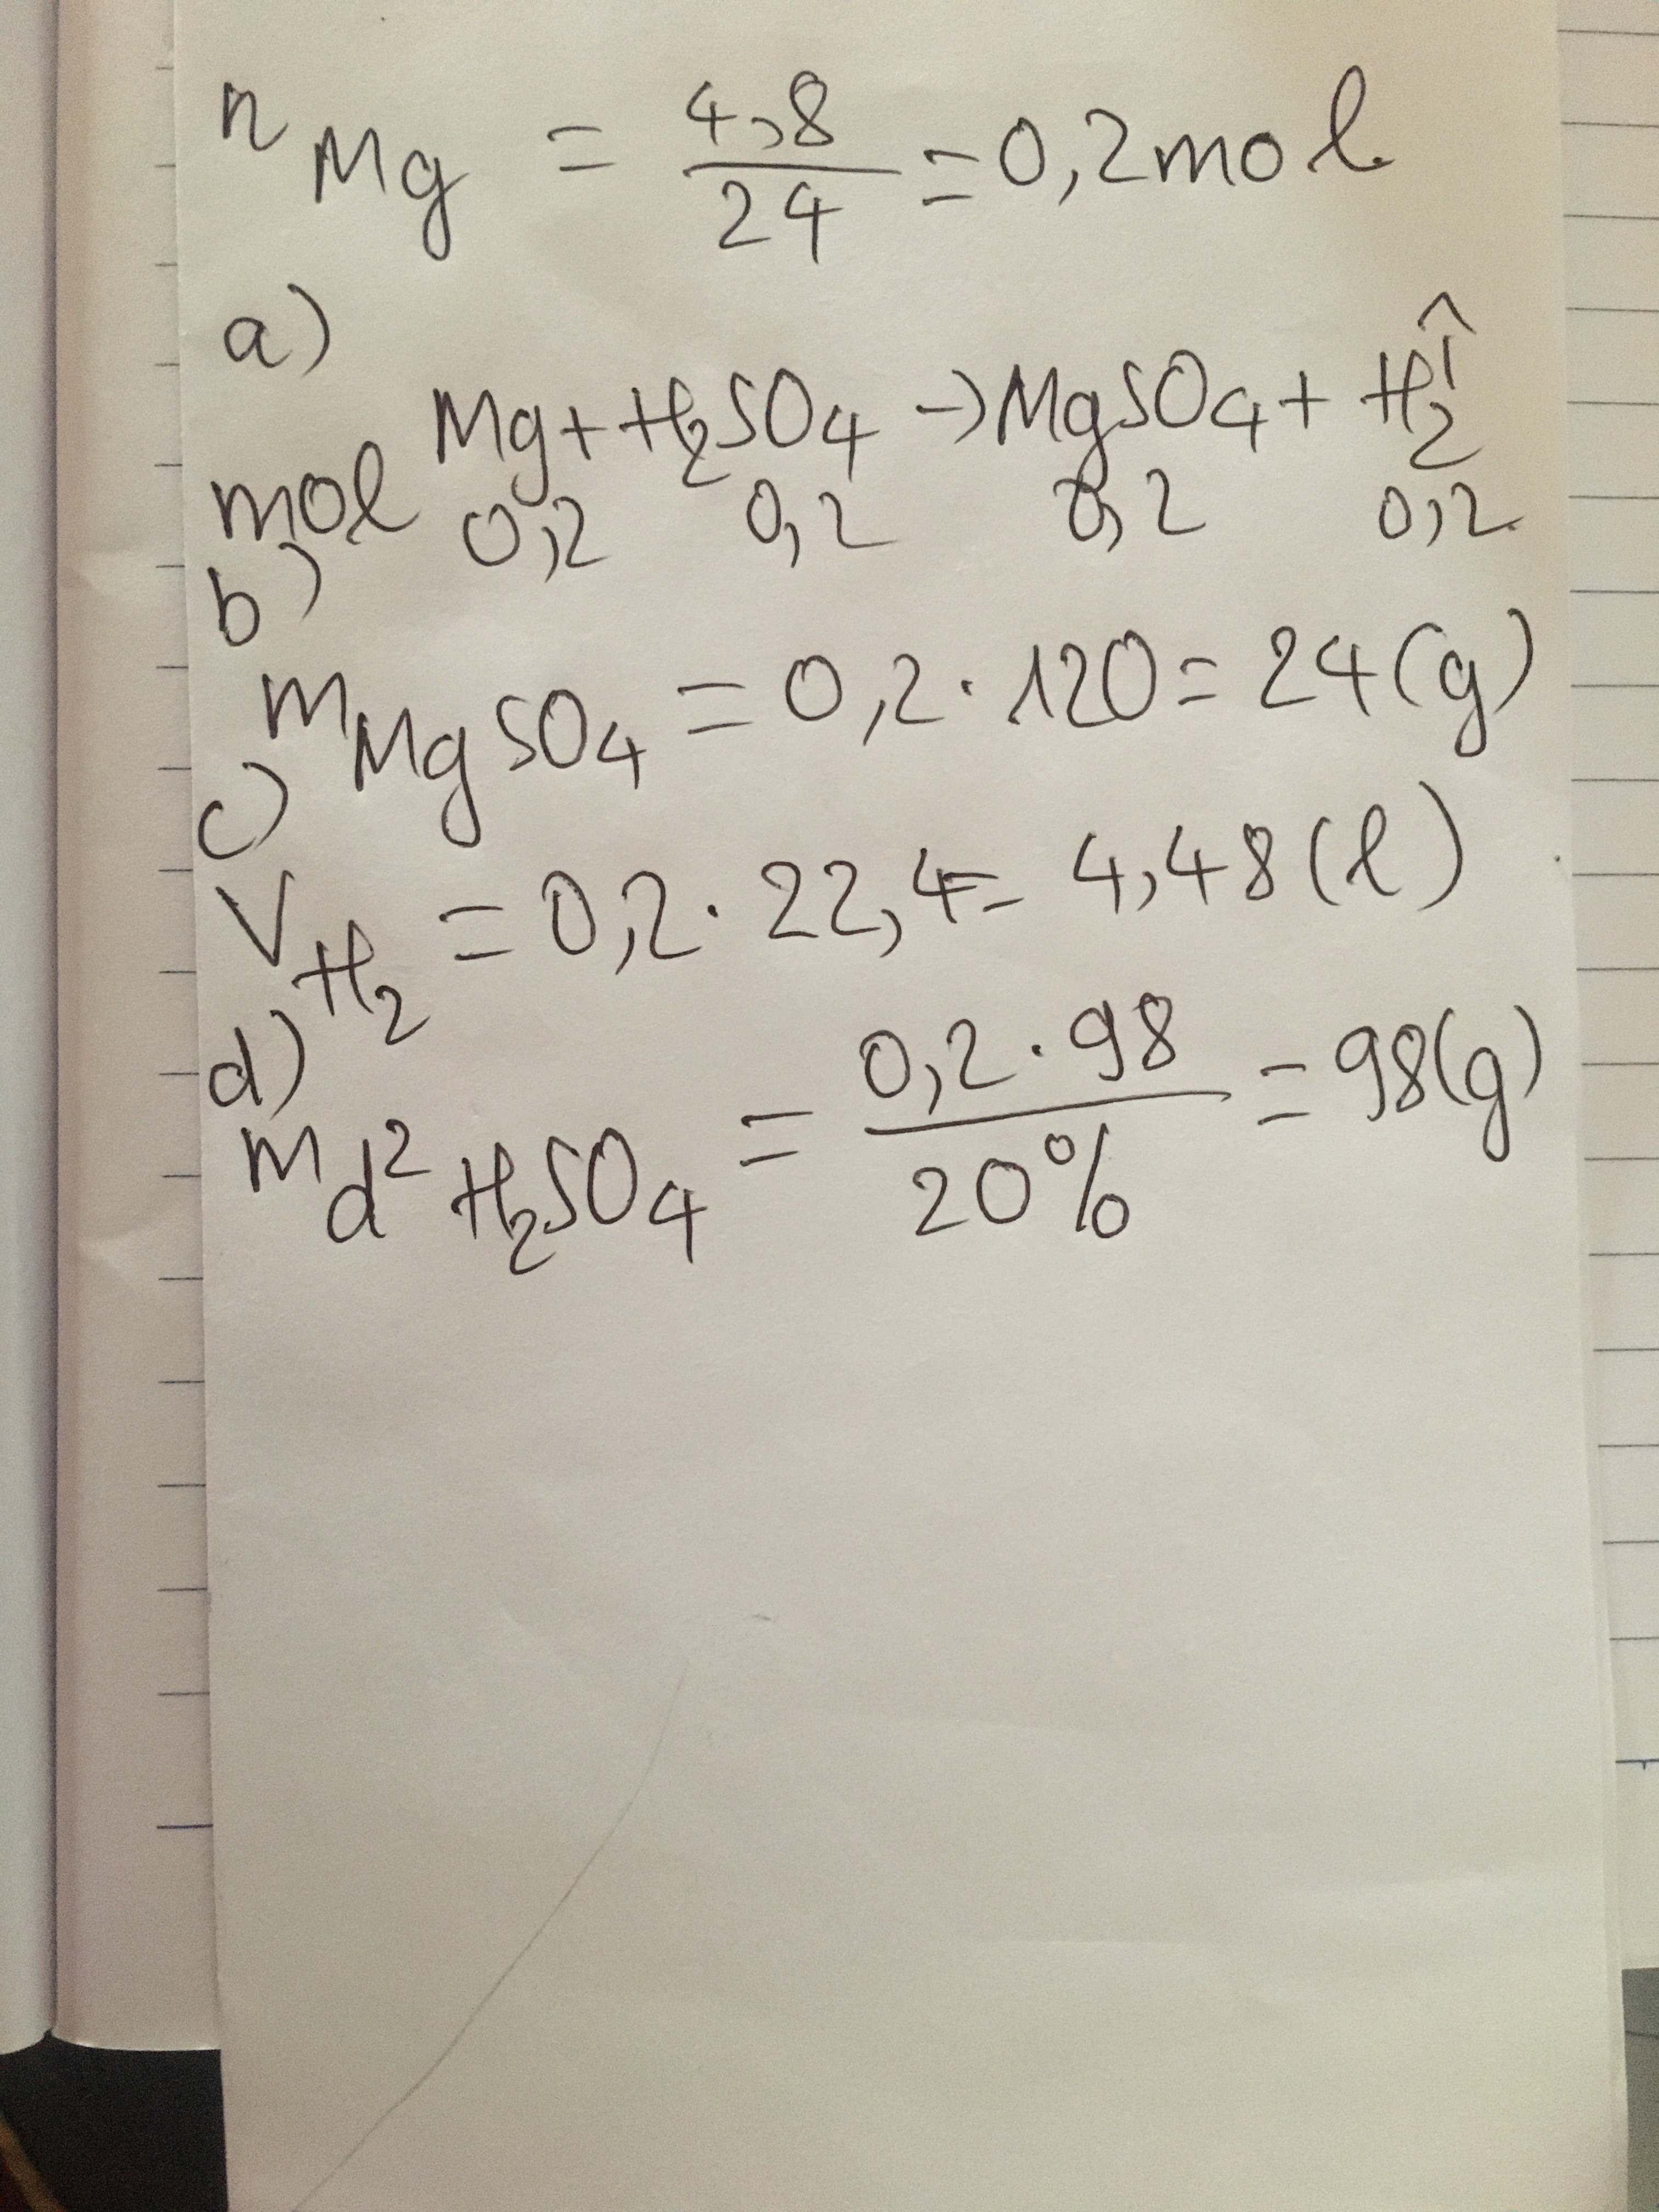 n Mg = 4,8 / 24 = 0,2 mol
a)
Mg + H2SO4 → MgSO4 + H2↑
mol 0,2 0,2 0,2 0,2
b)
m MgSO4 = 0,2 . 120 = 24 (g)
c)
V H2 = 0,2 . 22,4 = 4,48 (l)
d)
m d² H2SO4 = 0,2 . 98 / 20% = 98 (g)